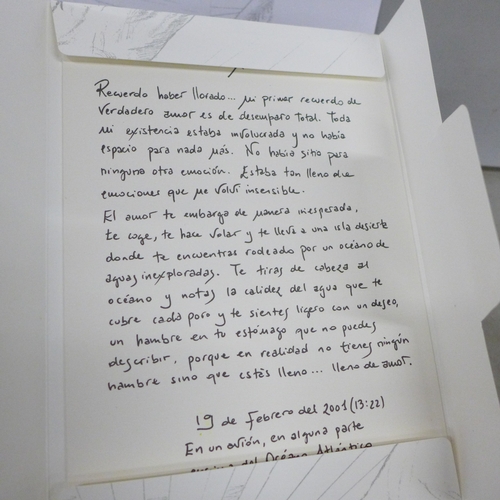 Recuerdo haber llorado... Mi primer recuerdo de
verdadero amor es de desemparo total. Toda
mi existencia estaba involucrada y no había
espacio para nada más. No había sitio para
ninguna otra emoción. Estaba tan lleno de
emociones que me volví insensible.
El amor te embarga de manera inesperada,
te coge, te hace volar y te lleva a una isla desierta
donde te encuentras rodeado por un océano de
aguas inexploradas. Te tiras de cabeza al
océano y notas la calidez del agua que te
cubre cada poro y te sientes ligero con un deseo,
un hambre en tu estómago que no puedes
describir, porque en realidad no tienes ningún
hambre sino que estás lleno... lleno de amor.
19 de Febrero del 2001 (13:22)
En un avión, en alguna parte
encima del Océano Atlántico